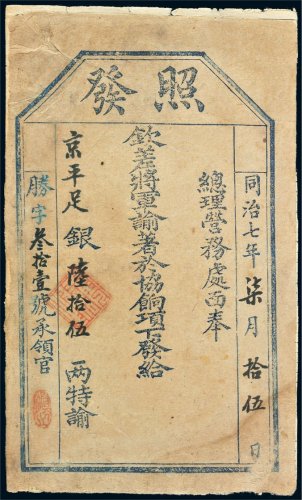 照發
同治七年柒月拾伍日
總理營務處面奉
欽差將軍諭著於協餉項下發給
京平足銀陸拾伍兩特諭
勝字叁拾壹號承領官